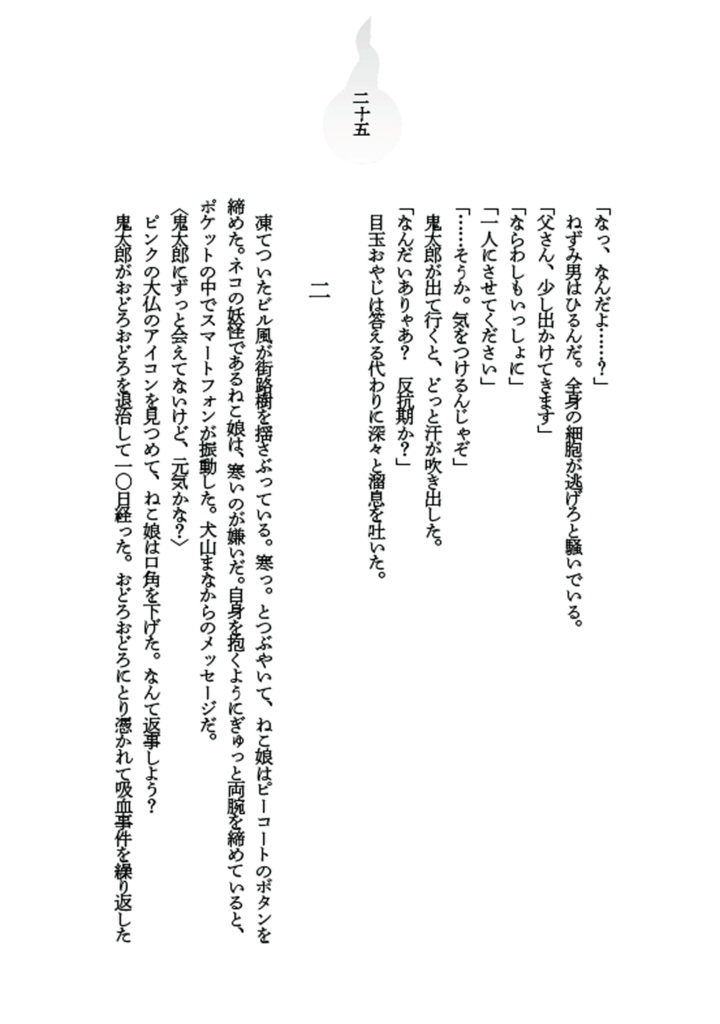 二十五
「なっ、なんだよ……？」
ねずみ男はひるんだ。全身の細胞が逃げろと騒いでいる。
「父さん、少し出かけてきます」
「ならわしもいっしょに」
「一人にさせてください」
「……そうか。気をつけるんじゃぞ」
鬼太郎が出て行くと、どっと汗が吹き出した。
「なんだいありゃあ？　反抗期か？」
目玉おやじは答える代わりに深々と溜息を吐いた。
二
凍てついたビル風が街路樹を揺さぶっている。寒っ。とつぶやいて、ねこ娘はピーコートのボタンを
締めた。ネコの妖怪であるねこ娘は、寒いのが嫌いだ。自身を抱くようにぎゅっと両腕を締めていると、
ポケットの中でスマートフォンが振動した。犬山まなからのメッセージだ。
〈鬼太郎にずっと会えてないけど、元気かな？〉
ピンクの大仏のアイコンを見つめて、ねこ娘は口角を下げた。なんて返事しよう？
鬼太郎がおどろおどろを退治して一〇日経った。おどろおどろにとり憑かれて吸血事件を繰り返した